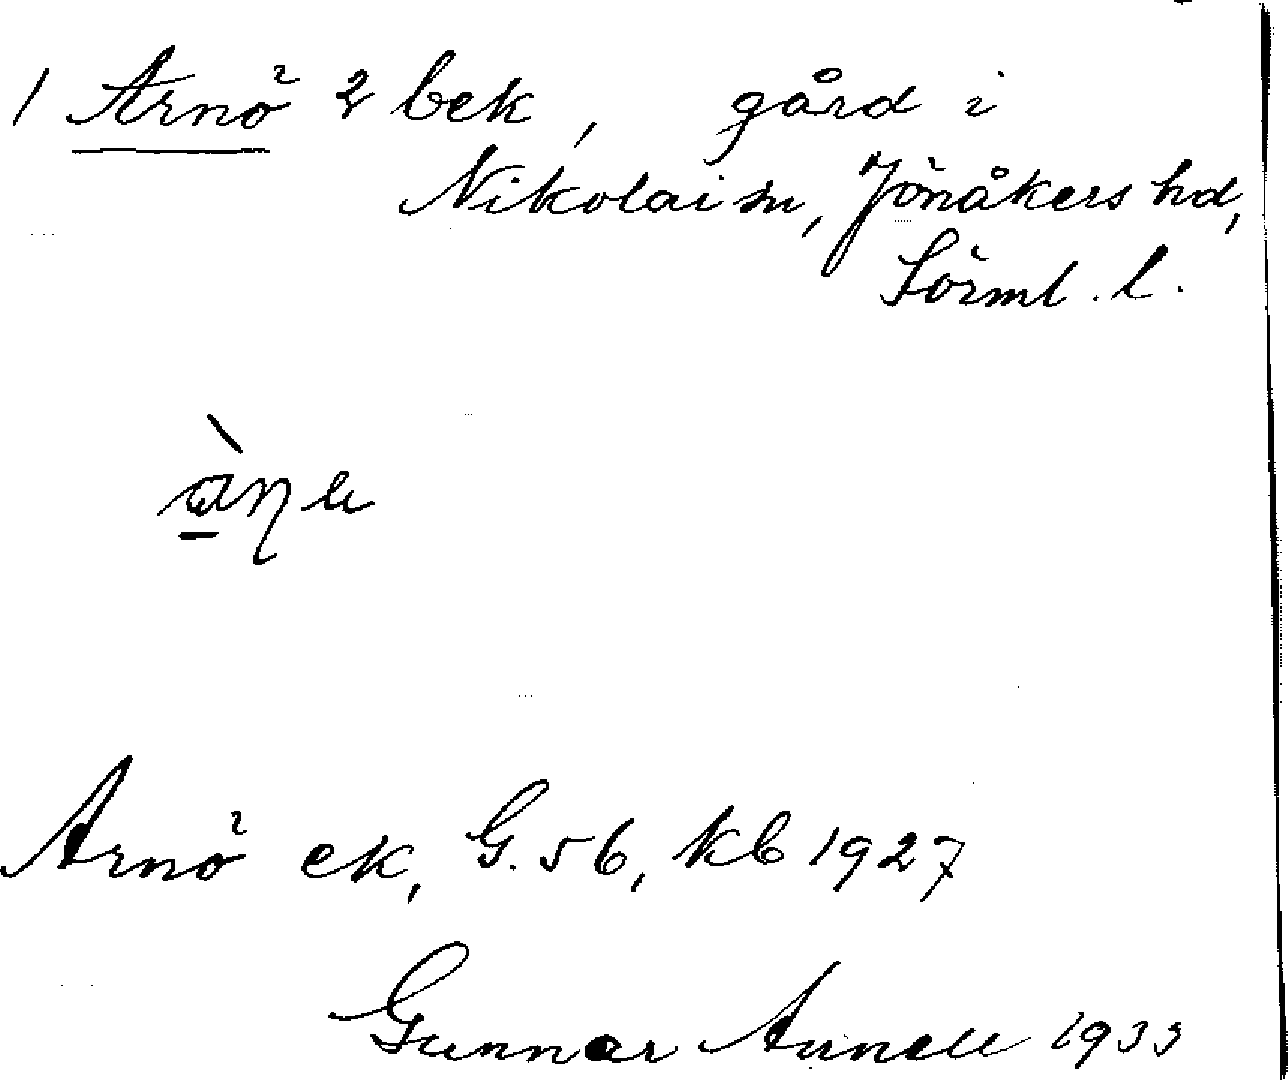 1 Arnö 2 bek, gård i
Nikolai sn, Jönåkers hd,
Sörml. l.
Arnö ek, G. 56, kb 1927
Gunnar Annell 1933